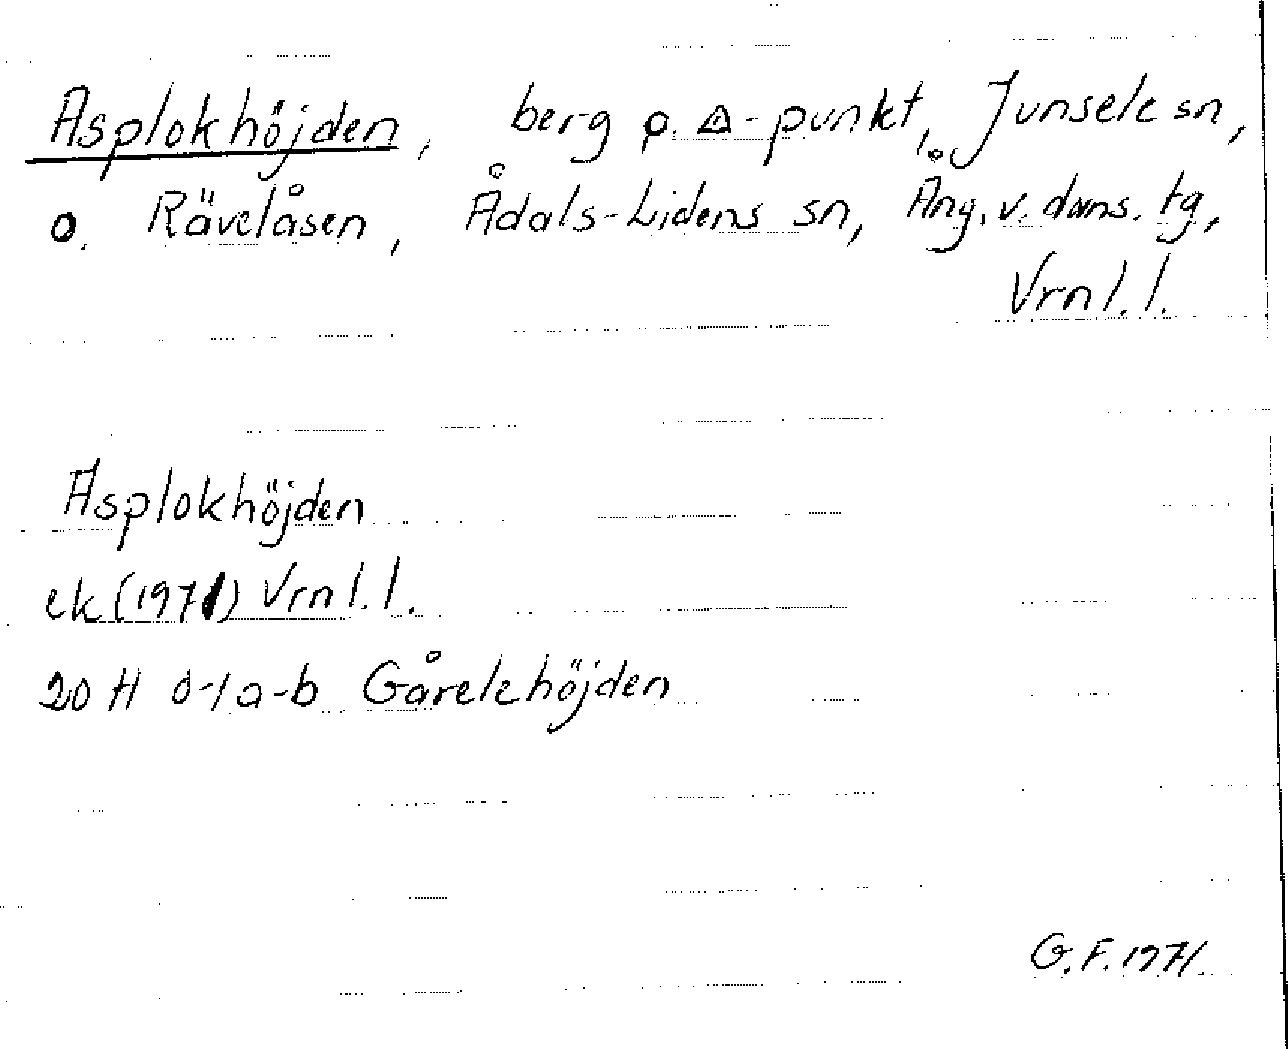 Asplokhöjden, berg o. △-punkt, Junsele sn,
o. Rävelåsen, Ådals-Lidens sn, Ång. v. doms. tg,
Vrnl.l.
Asplokhöjden
ek (1971) Vrnl.l.
20 H 0-1 a-b Gårelehöjden
G.F. 1971.